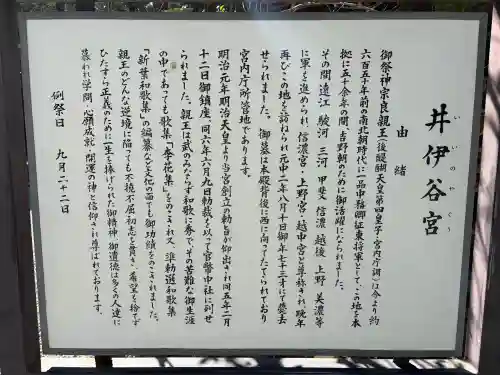 井伊谷宮
いいのやぐう
由緒
御祭神宗良親王(後醍醐天皇第四皇子・宮内庁調)は今より約
六百五十年前の南北朝時代に一品中務卿征東将軍として、この地を本
拠に五十余年の間、吉野朝のために御活躍になられました。
その間遠江 駿河 三河 甲斐 信濃 越後 上野 美濃等
に軍を進められ、信濃宮・上野宮・越中宮と尊称され、晩年
再びこの地を訪ねられ元中二年八月十日御年七十三才にて薨去
せられました。御墓は本殿背後に西に向ってたてられており
宮内庁所管地であります。
明治元年明治天皇より当宮創立の勅旨が仰出され同五年二月
十二日御鎮座、同六年六月九日勅裁を以って官幣中社に列せ
られました。親王は武のみならず和歌に秀で、その苦難な御生涯
の中であっても歌集「李花集」をのこされ又、準勅選和歌集
「新葉和歌集」の編纂など文化の面でも御功績をのこされました。
親王のどんな逆境に陥っても不撓不屈初志を貫き、希望も捨てず
ひたすら正義のために一生を捧げられた御精神・御遺徳は多くの人達に
慕われ学問・心願成就・開運の神と信仰され尊ばれております。
例祭日 九月二十二日